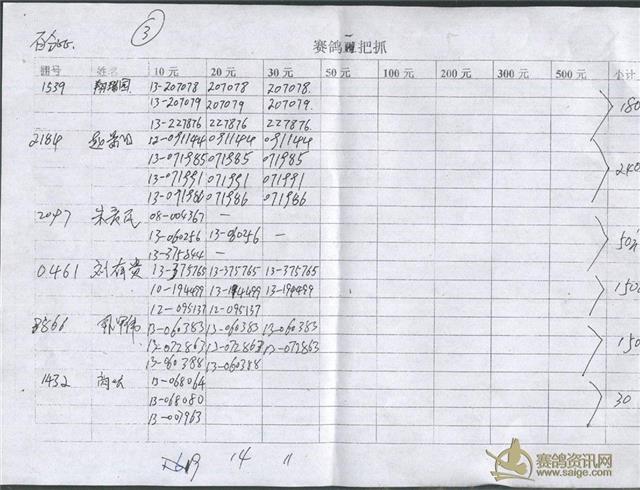 ③
赛鸽 把抓
棚号 姓名 10元 20元 30元 50元 100元 200元 300元 500元 小计
1539 13-207078 207078 207078.
13-207079 207079 207079.
13-227876 227876 227876. 180
2184 12-091144 091144 091144
13-071985 071985 071985
13-071991 071991 071991
13-071986 071986 071986 240
2097 朱彦民 08-004367 —
13-060256 13-060256 —
13-375844 — 50
0461 刘有贵 13-375765 13-375765 13-375765
10-194499 13-194499 13-194499
12-095137 12-095137 150
13-060383 13-060383 13-060383
13-072863 13-072863 13-072863
13-060388 13-060388 150
1432 13-068064
13-068080
13-007963 30
19 14 11
赛鸽资讯网
www.saige.com